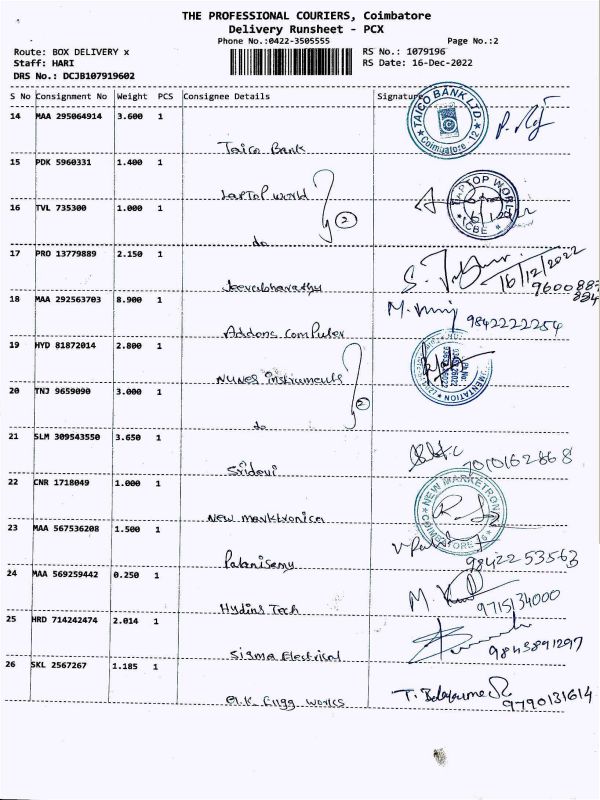 THE PROFESSIONAL COURIERS, Coimbatore
Delivery Runsheet - PCX
Phone No.:0422-3505555 Page No.:2
Route: BOX DELIVERY x RS No.: 1079196
Staff: HARI RS Date: 16-Dec-2022
DRS No.: DCJB107919602
S No Consignment No Weight PCS Consignee Details Signature
14 MAA 295064914 3.600 1
TAICO BANK LTD. Coimbatore - 12
Taico Bank
15 PDK 5960331 1.400 1
Laptop world
LAPTOP WORLD CBE
16 TVL 735300 1.000 1
2
do
17 PRO 13779889 2.150 1
16/12/2022
Jeevabharathy
18 MAA 292563703 8.900 1
9842222254
Addons computer
19 HYD 81872014 2.800 1
Nunes instruments
20 TNJ 9659090 3.000 1
2
do
21 SLM 309543550 3.650 1
Sridevi
7010162868
22 CNR 1718049 1.000 1
NEW MARKETRON COIMBATORE
New marktronica
23 MAA 567536208 1.500 1
Palanisamy
9842253563
24 MAA 569259442 0.250 1
Hydins Tech
9715134000
25 HRD 714242474 2.014 1
Sigma Electrical
9843891297
26 SKL 2567267 1.185 1
Engg works
9790131614